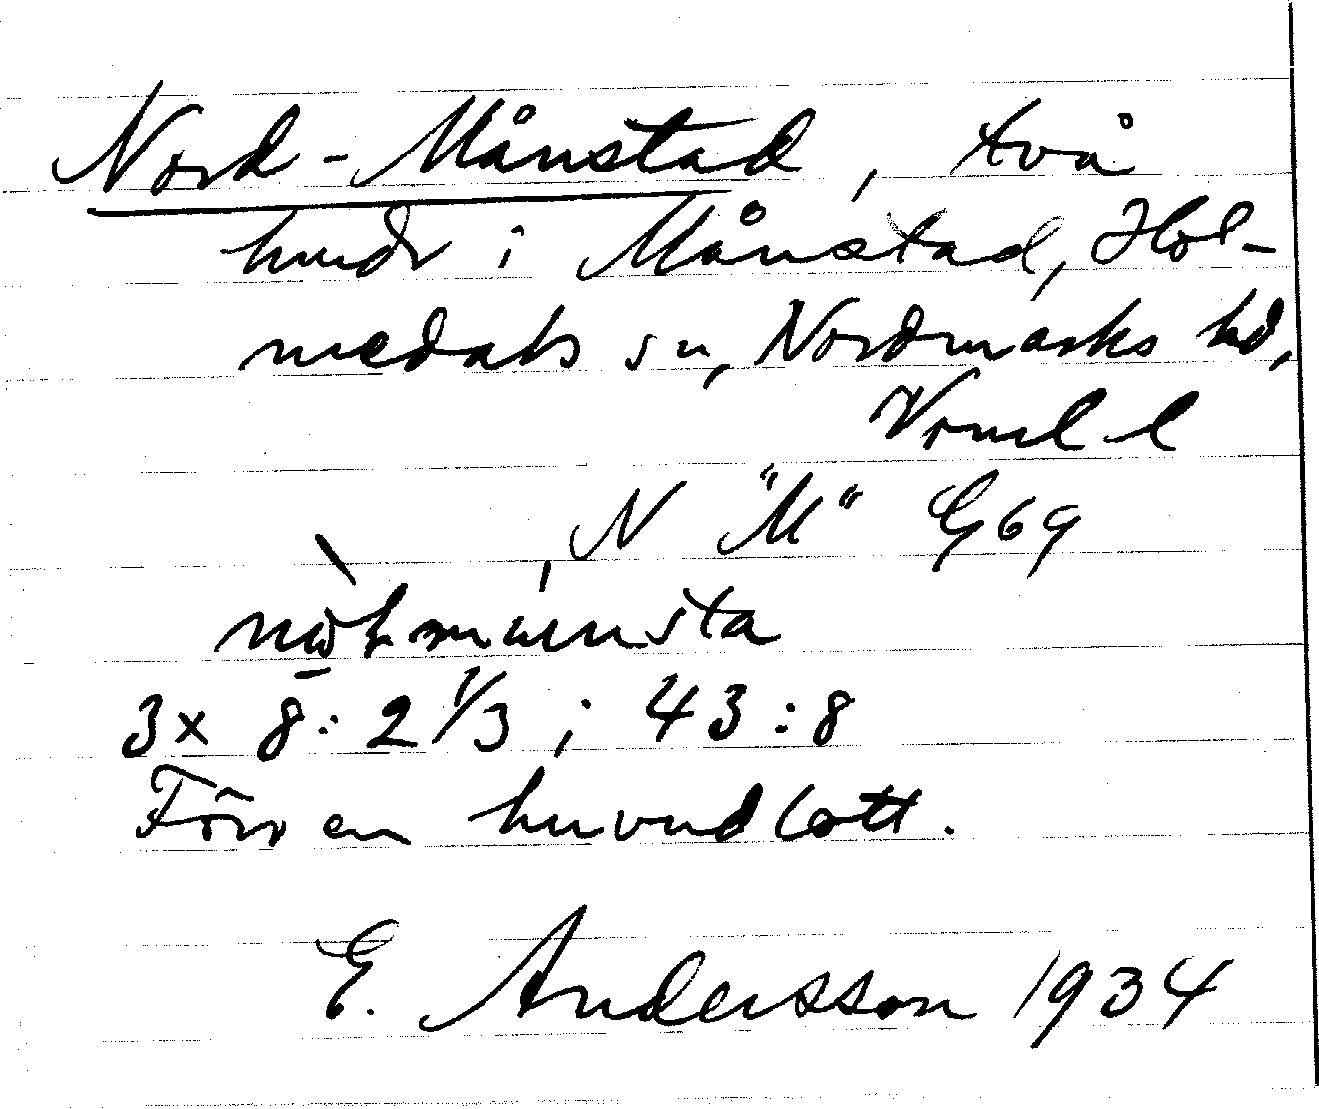 Nord-Månstad, två
hmdr i Månstad, Hol-
medals sn, Nordmarks hd,
Vrml l
N "M" G69
3x 8: 2 1/3 ; 43:8
Förr en huvudlott.
E. Andersson 1934